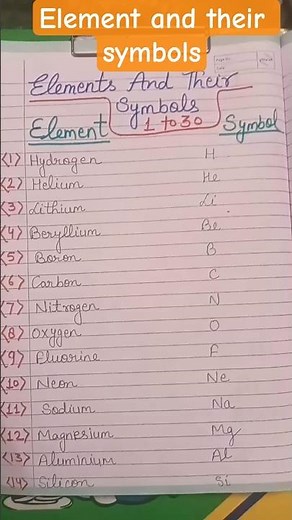 Element and their
symbols
Elements And Their
Symbols
1 to 30
Element Symbol
(1) Hydrogen H
(2) Helium He
(3) Lithium Li
(4) Beryllium Be
(5) Boron B
(6) Carbon C
(7) Nitrogen N
(8) Oxygen O
(9) Fluorine F
(10) Neon Ne
(11) Sodium Na
(12) Magnesium Mg
(13) Aluminium Al
(14) Silicon Si